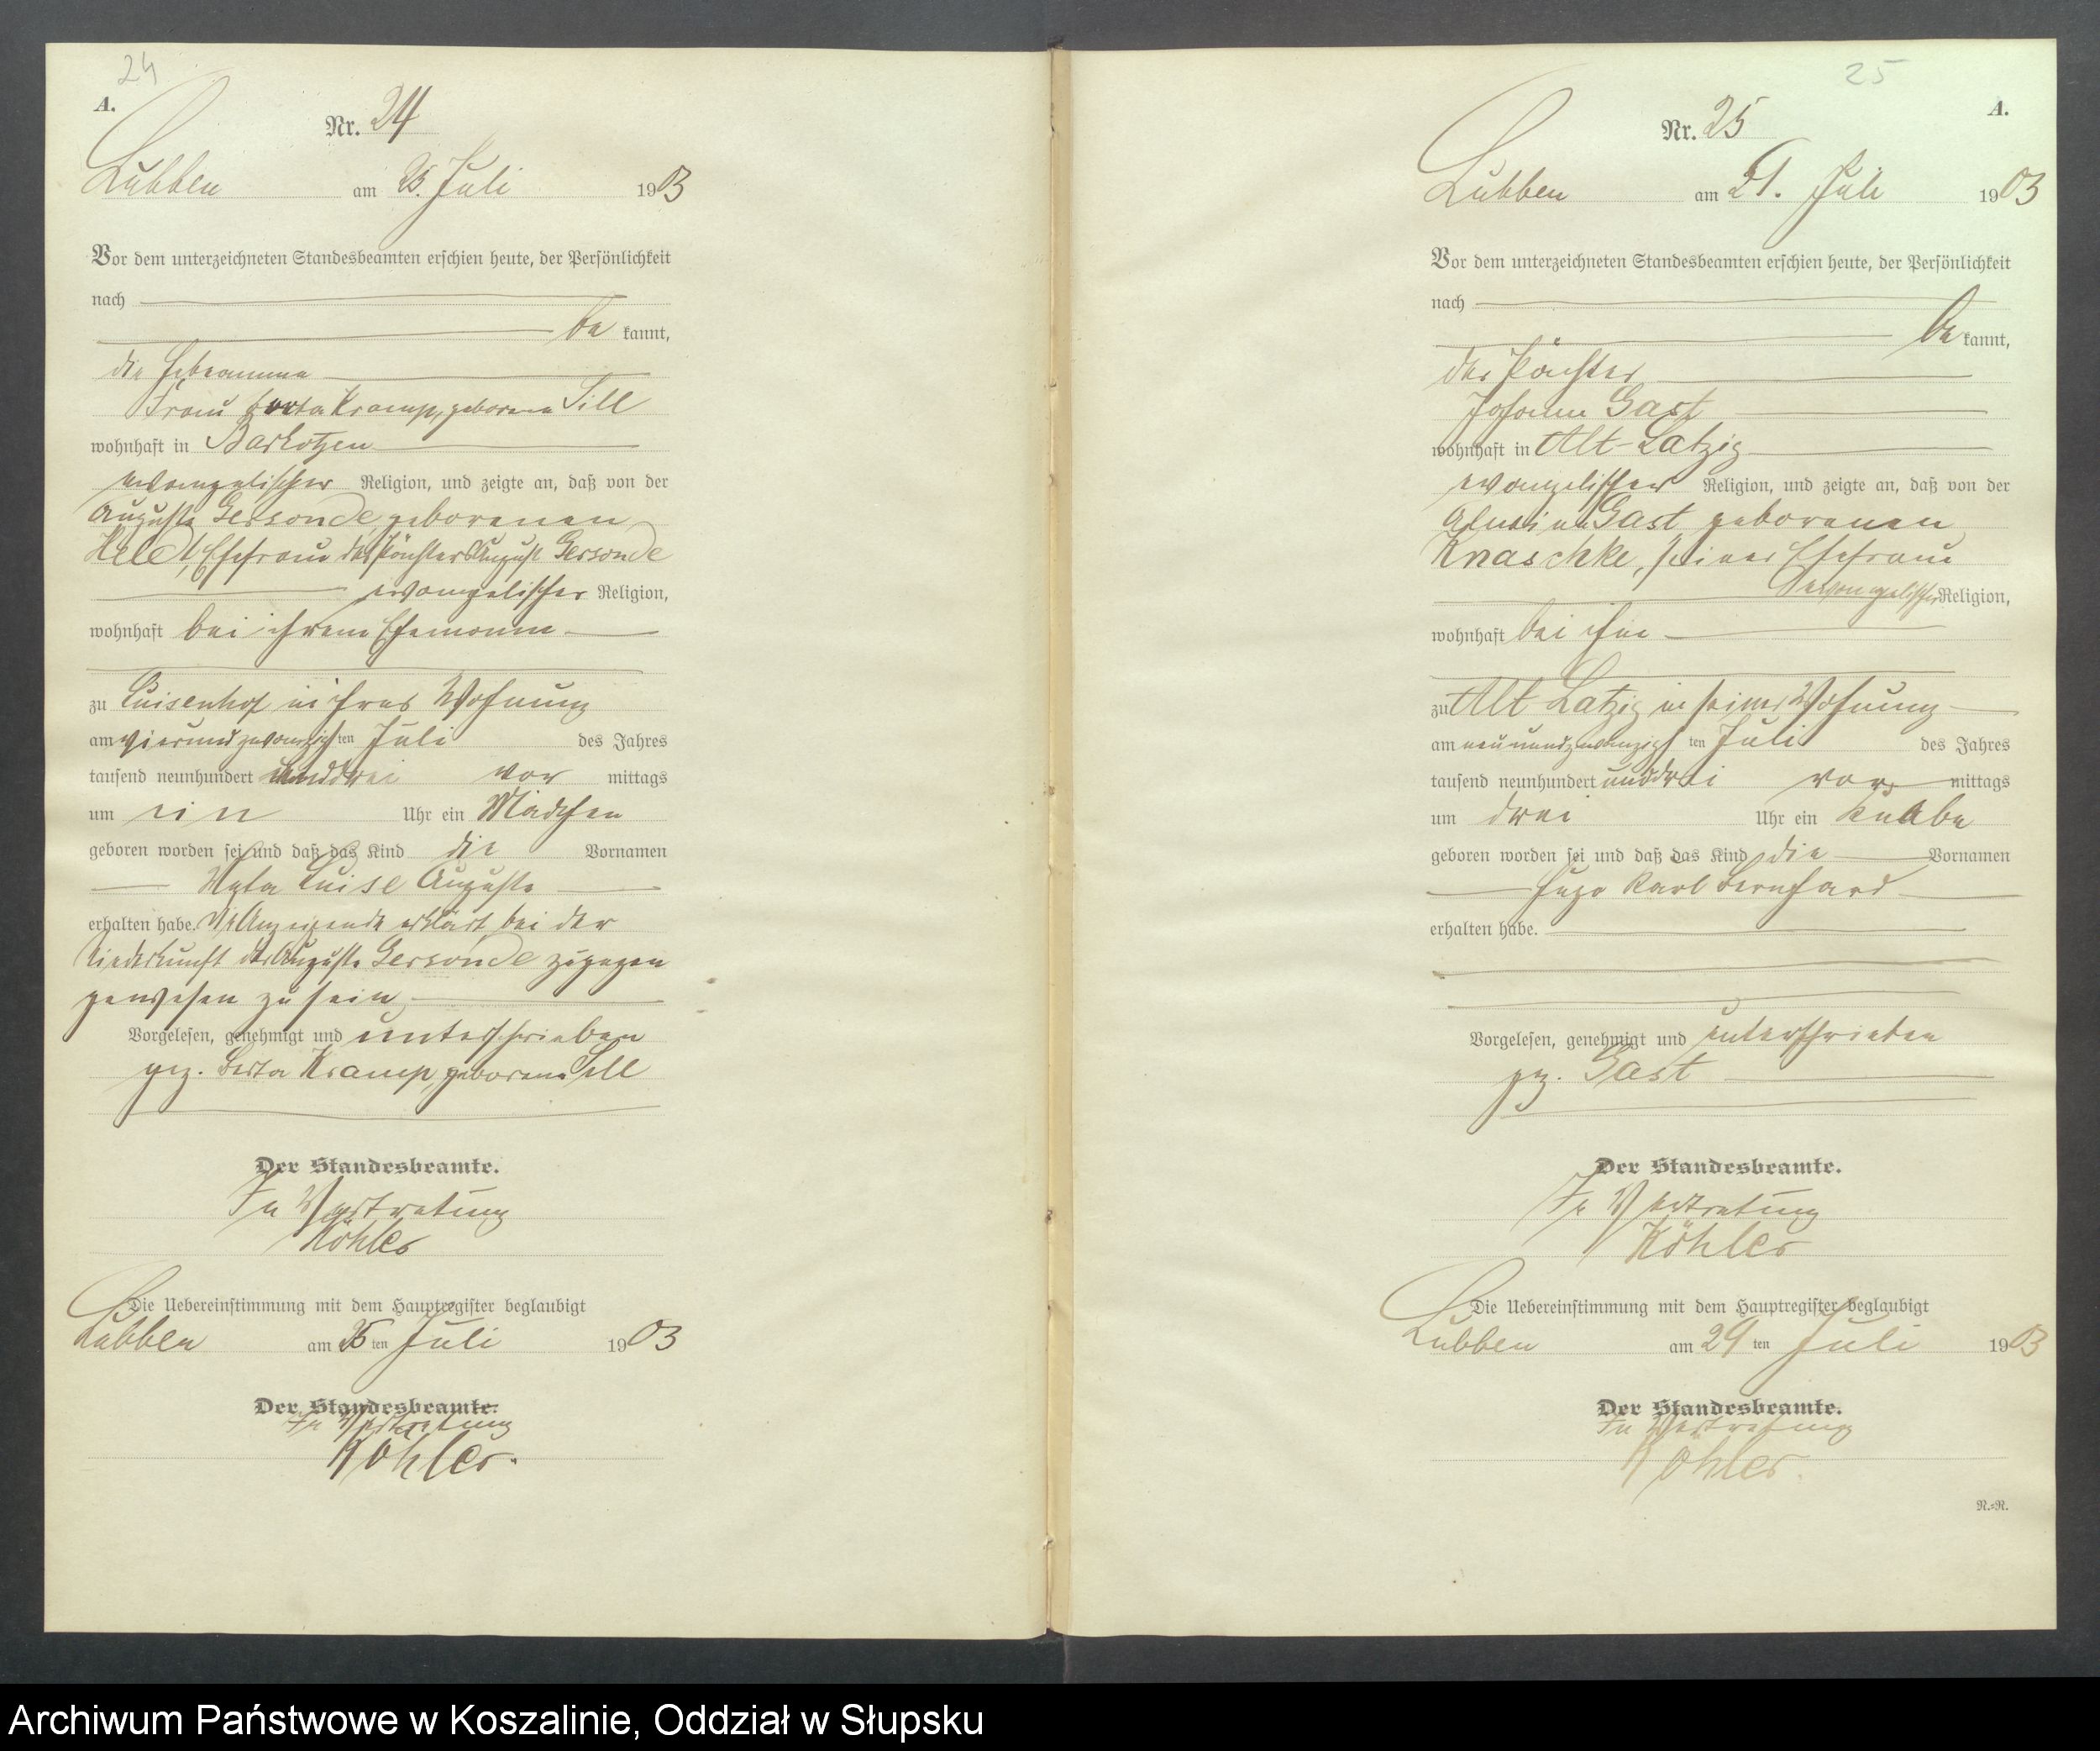 24
A.
Nr. 24
Lubben am 25. Juli 1903
Vor dem unterzeichneten Standesbeamten erschien heute, der Persönlichkeit
nach
be kannt,
die Hebeamme
Frau Berta Kramp, geborene Sill
wohnhaft in Barkotzen
evangelischer Religion, und zeigte an, daß von der
Auguste Gersonde geborenen
Heldt, Ehefrau des Pächters August Gersonde
evangelischer Religion,
wohnhaft bei ihrem Ehemanne
zu Luisenhof in ihrer Wohnung
am vierundzwanzigsten Juli des Jahres
tausend neunhundert unddrei vor mittags
um ein Uhr ein Mädchen
geboren worden sei und daß das Kind die Vornamen
Luise Auguste
erhalten habe. Die Anzeigende erklärt bei der
Niederkunft der Auguste Gersonde zugegen
gewesen zu sein
Vorgelesen, genehmigt und unterschrieben
gez. Berta Kramp, geborene Sill
Der Standesbeamte.
In Vertretung
Köhler
Die Uebereinstimmung mit dem Hauptregister beglaubigt
Lubben am 25 ten Juli 1903
Der Standesbeamte.
In Vertretung
Köhler.
25
A.
Nr. 25
Lubben am Juli 1903
Vor dem unterzeichneten Standesbeamten erschien heute, der Persönlichkeit
nach
be kannt,
der Pächter
Johann Gast
wohnhaft in Alt-Latzig
evangelischer Religion, und zeigte an, daß von der
Gast geborenen
Knaschke, seiner Ehefrau
evangelischer Religion,
wohnhaft bei ihm
zu Alt Latzig in seiner Wohnung
am neunundzwanzigsten Juli des Jahres
tausend neunhundert unddrei vor mittags
um drei Uhr ein Knabe
geboren worden sei und daß das Kind die Vornamen
Hugo Karl Bernhard
erhalten habe.
Vorgelesen, genehmigt und unterschrieben
gz. Gast
Der Standesbeamte.
In Vertretung
Köhler
Die Uebereinstimmung mit dem Hauptregister beglaubigt
Lubben am 29 ten Juli 1903
Der Standesbeamte.
In Vertretung
Köhler.
N.-N.
Archiwum Państwowe w Koszalinie, Oddział w Słupsku